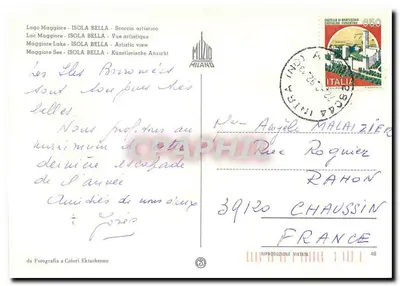 Lago Maggiore - ISOLA BELLA - Scorcio artistico
Lac Majeur - ISOLA BELLA - Vue artistique
Maggiore Lake - ISOLA BELLA - Artistic view
Maggiore See - ISOLA BELLA - Künstlerische Ansicht
MILANO
650
ITALIA
28044 INTRA (NO)
Les Iles Borromées
sont toujours très
belles
Nous profitons au
maximum de cette
dernière escapade
de l'année
Amitiés de nous deux
Angèle MALAIZIER
Rue Roguier
RAHON
39120 CHAUSSIN
FRANCE
da Fotografia a Colori Ektachrome
RIPRODUZIONE VIETATA